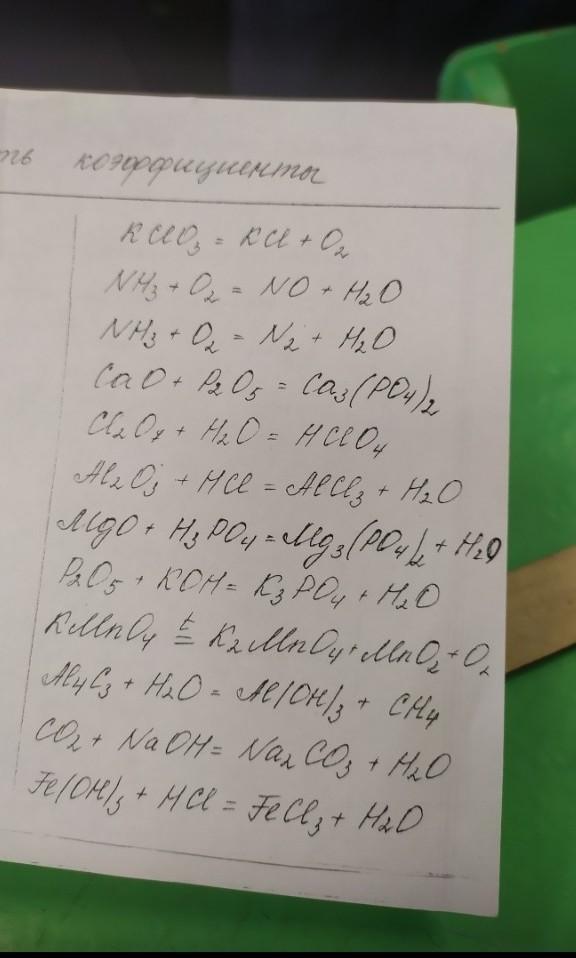 коэффициенты
KClO₃ = KCl + O₂
NH₃ + O₂ = NO + H₂O
NH₃ + O₂ = N₂ + H₂O
CaO + P₂O₅ = Ca₃(PO₄)₂
Cl₂O₇ + H₂O = HClO₄
Al₂O₃ + HCl = AlCl₃ + H₂O
MgO + H₃PO₄ = Mg₃(PO₄)₂ + H₂O
P₂O₅ + KOH = K₃PO₄ + H₂O
KMnO₄ t= K₂MnO₄ + MnO₂ + O₂
Al₄C₃ + H₂O = Al(OH)₃ + CH₄
CO₂ + NaOH = Na₂CO₃ + H₂O
Fe(OH)₃ + HCl = FeCl₃ + H₂O